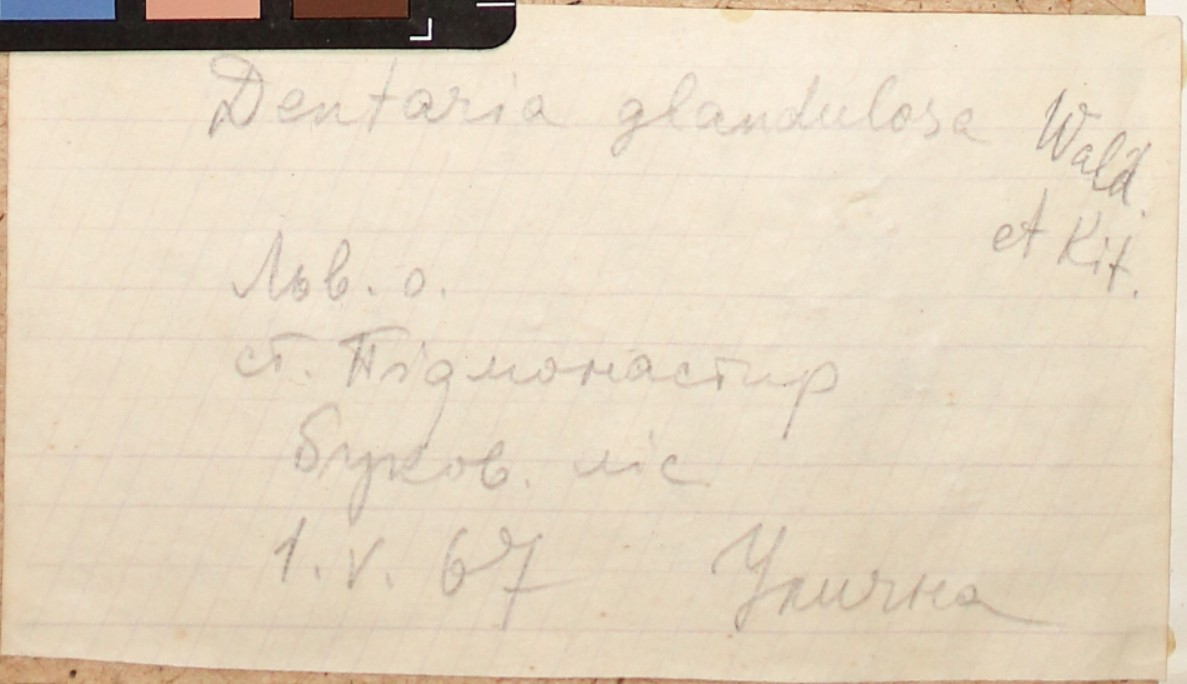 Dentaria glandulosa Wald.
et Kit.
Льв. о.
ст. Підмонастир
Буков. ліс
1. V. 67 Уличка